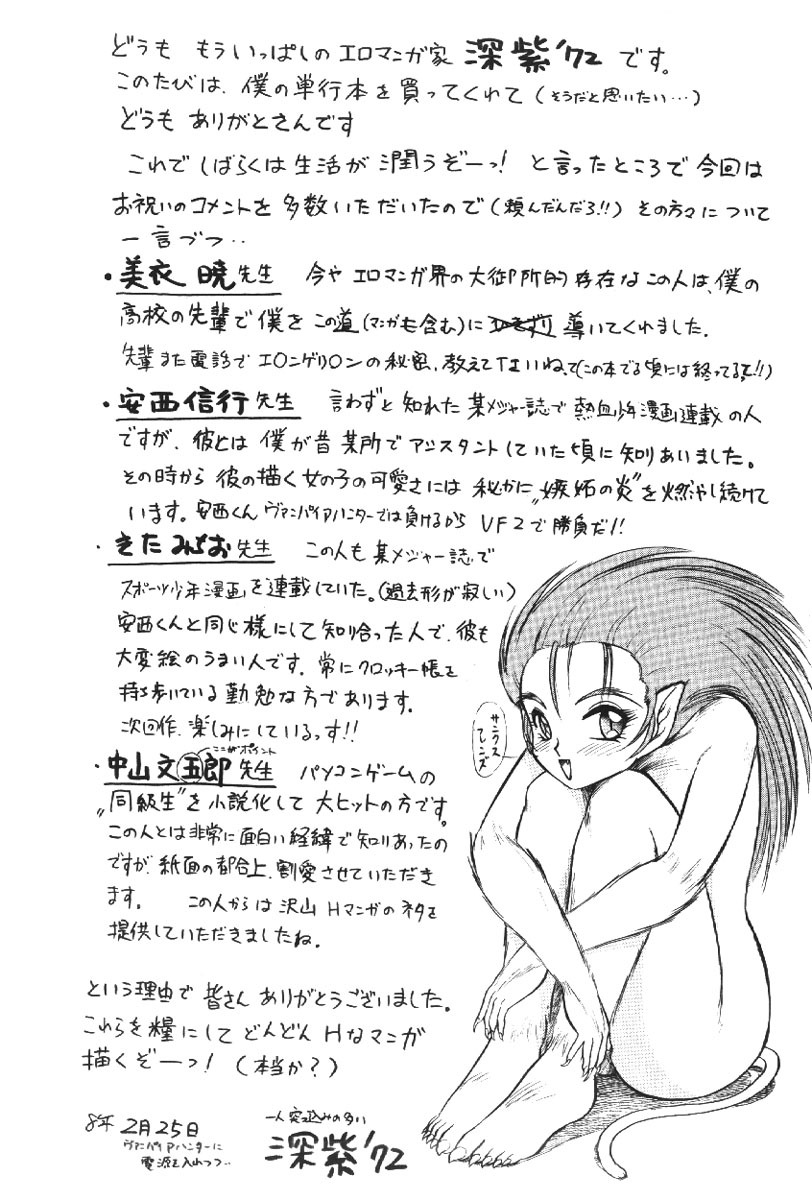 どうも もういっぱしの エロマンガ家 深紫'72 です。
このたびは、僕の単行本を買ってくれて（そうだと思いたい…）
どうも ありがとさんです
これで しばらくは 生活が 潤うぞーっ！ と言ったところで 今回は
お祝いのコメントを 多数いただいたので（頼んだんだろ!!）その方々について
一言づつ‥
・美衣 暁先生 今や エロマンガ界の大御所的存在なこの人は、僕の
高校の先輩で僕を この道（マンガも含む）に 導いてくれました。
先輩また電話で エ〇ンゲリ〇ンの秘密、教えて下さいね、て（この本でる頃には終ってるって!!）
・安西信行先生 言わずと知れた 某メジャー誌で 熱血少年漫画連載の人
ですが、彼とは 僕が昔 某所で アシスタントしていた頃に知りあいました。
その時から 彼の描く女の子の可愛さには 秘かに〝嫉妬の炎〟を燃やし続けて
います。安西くん ヴァンパイアハンターでは負けるから VF2で勝負だ!!
・きた みちお先生 この人も 某メジャー誌で
スポーツ少年漫画を連載していた。（過去形が寂しい）
安西くんと同じ様にして知り合った人で、彼も
大変絵のうまい人です。常にクロッキー帳を
持ち歩いている 勤勉な方であります。
次回作、楽しみにしているっす!!
ここがポイント
・中山文五郎先生 パソコンゲームの
〝同級生〟を小説化して 大ヒットの方です。
この人とは非常に面白い経緯で知りあったの
ですが、紙面の都合上、割愛させていただき
ます。 この人からは 沢山 Hマンガのネタを
提供していただきましたね。
サンクス
フレンズ
という理由で 皆さん ありがとうございました。
これらを糧にして どんどん Hなマンガ
描くぞーっ！（本当か？）
8年 2月25日
ヴァンパイアハンターに
電源を入れつつ‥
一人突っ込みの多い
深紫'72